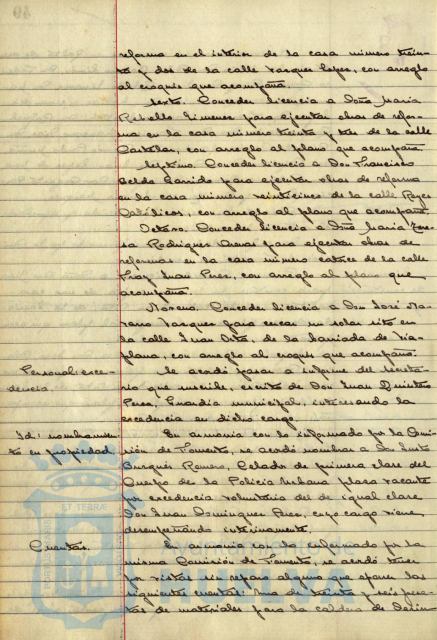 reforma en el interior de la casa número trein-
ta y dos de la calle Vazquez Lopez, con arreglo
al croquis que acompaña.
Sexto. Conceder licencia a Doña Maria
Rebollo Jimenez para ejecutar obras de refor-
ma en la casa número treinta y tres de la calle
Castelar, con arreglo al plano que acompaña.
Septimo. Conceder licencia a Don Francisco
Garrido para ejecutar obras de reforma
en la casa número veinticinco de la calle Reyes
Católicos, con arreglo al plano que acompaña.
Octavo. Conceder licencia a Doña Maria Tere-
sa Rodriguez para ejecutar obras de
reformas en la casa número catorce de la calle
Fray Juan Perez, con arreglo al plano que
acompaña.
Noveno. Conceder licencia a Don José Na-
varro Vazquez para cercar un solar sito en
la calle Juan de la barriada de Via-
plana, con arreglo al croquis que acompaña.
Personal: exce-
dencia.
Se acordó pasar a informe del Secreta-
rio que suscribe, escrito de Don Juan Quintero
Perez, Guardia municipal, interesando la
excedencia en dicho cargo.
Id: nombramien-
to en propiedad
En armonia con lo informado por la Comi-
sión de Fomento, se acordó nombrar a Don Justo
Romero, Celador de primera clase del
Cuerpo de la Policia Urbana plaza vacante
por excedencia voluntaria del de igual clase
Don Juan Dominguez Perez, cuyo cargo viene
desempeñando interinamente.
Cuentas.
En armonia con lo informado por la
misma Comisión de Fomento, se acordó tener
por vistas sin reparo alguno que oponer las
siguientes cuentas: Una de treinta y seis pese-
tas de materiales para la caldera de